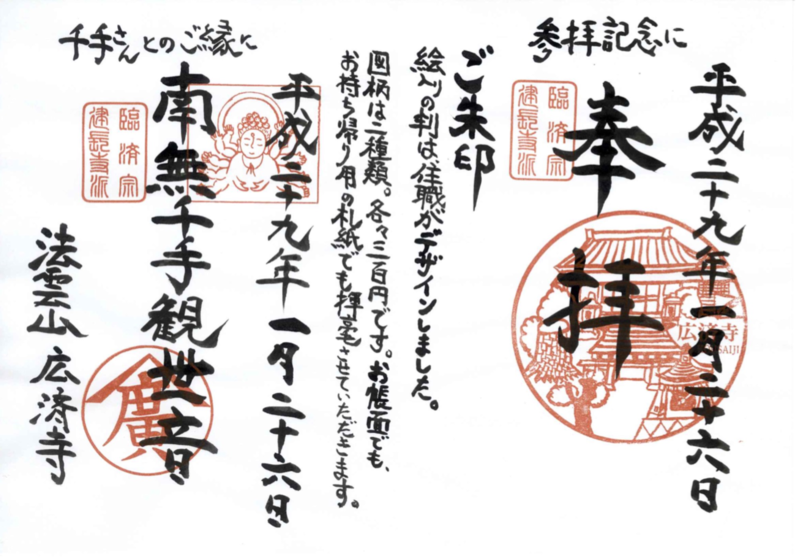 参拝記念に
平成二十九年一月二十六日
奉拝
臨済宗
建長寺派
広済寺
SAIJI
ご朱印
絵入りの判は、住職がデザインしました。
図柄は二種類。各々三百円です。お帳面でも、
お持ち帰り用の札紙でも揮毫させていただきます。
千手さんとのご縁に
平成二十九年一月二十六日
南無千手観世音
臨済宗
建長寺派
廣
法雲山 広済寺